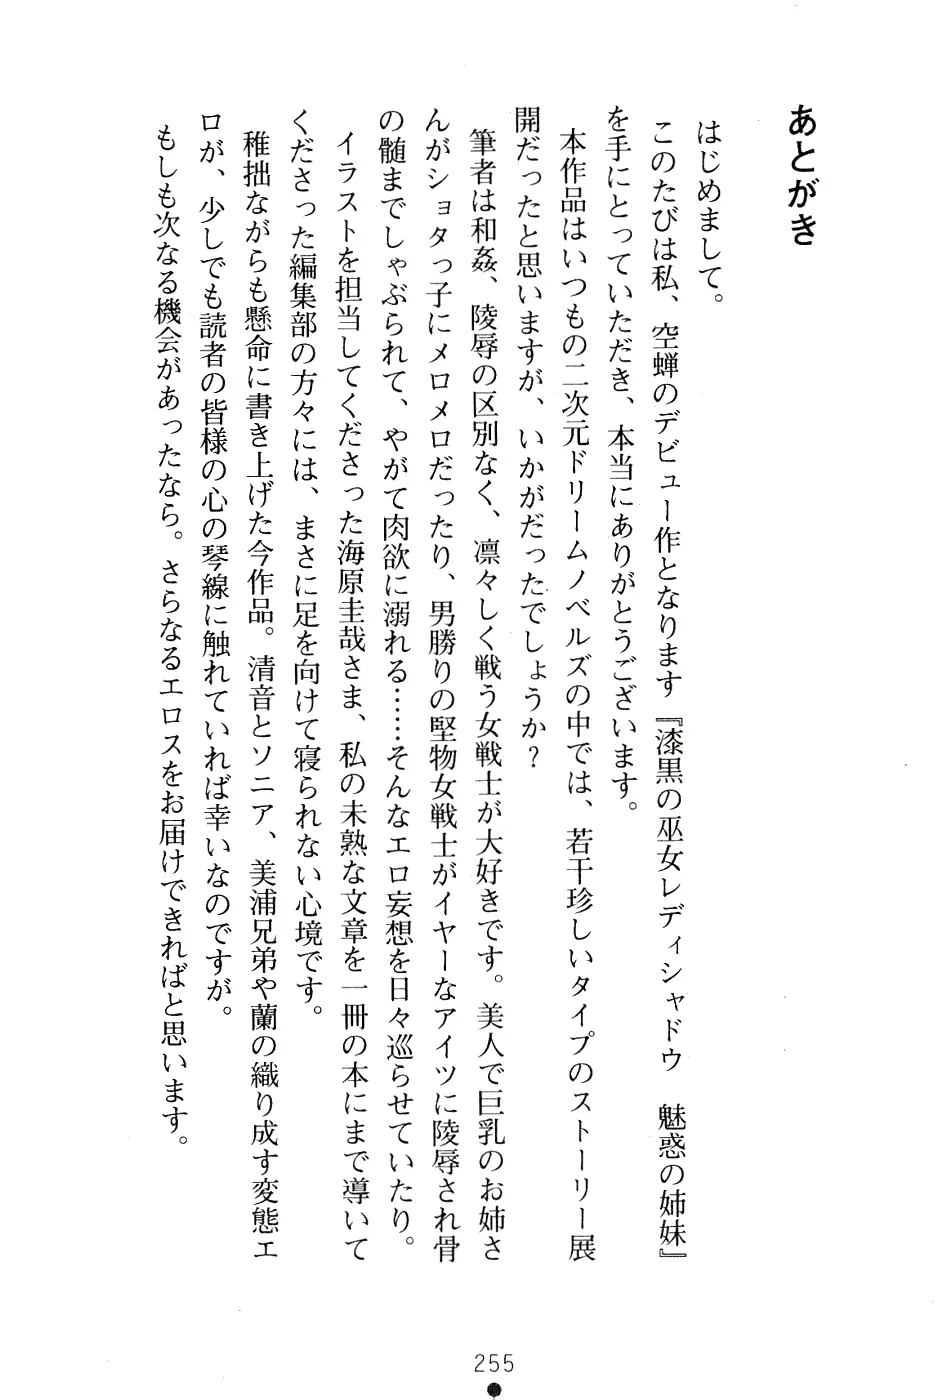 あとがき
はじめまして。
このたびは私、空蝉のデビュー作となります『漆黒の巫女レディシャドウ　魅惑の姉妹』
を手にとっていただき、本当にありがとうございます。
本作品はいつもの二次元ドリームノベルズの中では、若干珍しいタイプのストーリー展
開だったと思いますが、いかがだったでしょうか？
筆者は和姦、陵辱の区別なく、凛々しく戦う女戦士が大好きです。美人で巨乳のお姉さ
んがショタっ子にメロメロだったり、男勝りの堅物女戦士がイヤーなアイツに陵辱され骨
の髄までしゃぶられて、やがて肉欲に溺れる……そんなエロ妄想を日々巡らせていたり。
イラストを担当してくださった海原圭哉さま、私の未熟な文章を一冊の本にまで導いて
くださった編集部の方々には、まさに足を向けて寝られない心境です。
稚拙ながらも懸命に書き上げた今作品。清音とソニア、美浦兄弟や蘭の織り成す変態エ
ロが、少しでも読者の皆様の心の琴線に触れていれば幸いなのですが。
もしも次なる機会があったなら。さらなるエロスをお届けできればと思います。
255